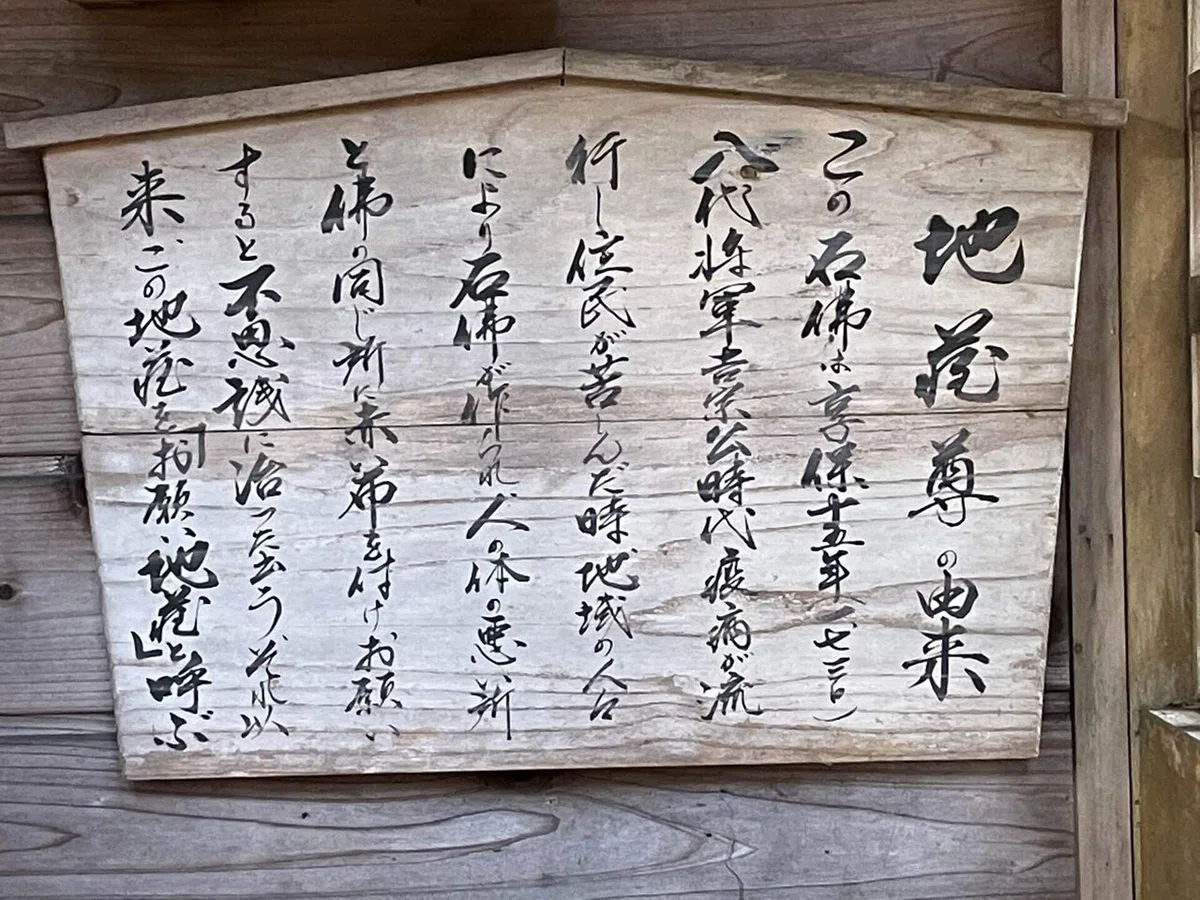 地蔵尊の由来
この石佛は享保十五年(一七三〇)
八代将軍吉宗公時代疫病が流
行し住民が苦しんだ時地域の人々
により石佛が作られ人の体の悪い所
と佛の同じ所に赤布を付けお願い
すると不思議に治ったと云うそれ以
来この地蔵を「お願い地蔵」と呼ぶ